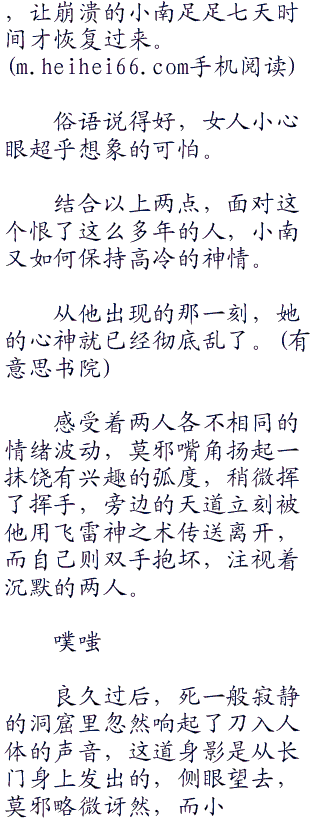 ，让崩溃的小南足足七天时
间才恢复过来。
(m.heihei66.com手机阅读)
俗语说得好，女人小心
眼超乎想象的可怕。
结合以上两点，面对这
个恨了这么多年的人，小南
又如何保持高冷的神情。
从他出现的那一刻，她
的心神就已经彻底乱了。(有
意思书院)
感受着两人各不相同的
情绪波动，莫邪嘴角扬起一
抹饶有兴趣的弧度，稍微挥
了挥手，旁边的天道立刻被
他用飞雷神之术传送离开，
而自己则双手抱坏，注视着
沉默的两人。
噗嗤
良久过后，死一般寂静
的洞窟里忽然响起了刀入人
体的声音，这道身影是从长
门身上发出的，侧眼望去，
莫邪略微讶然，而小